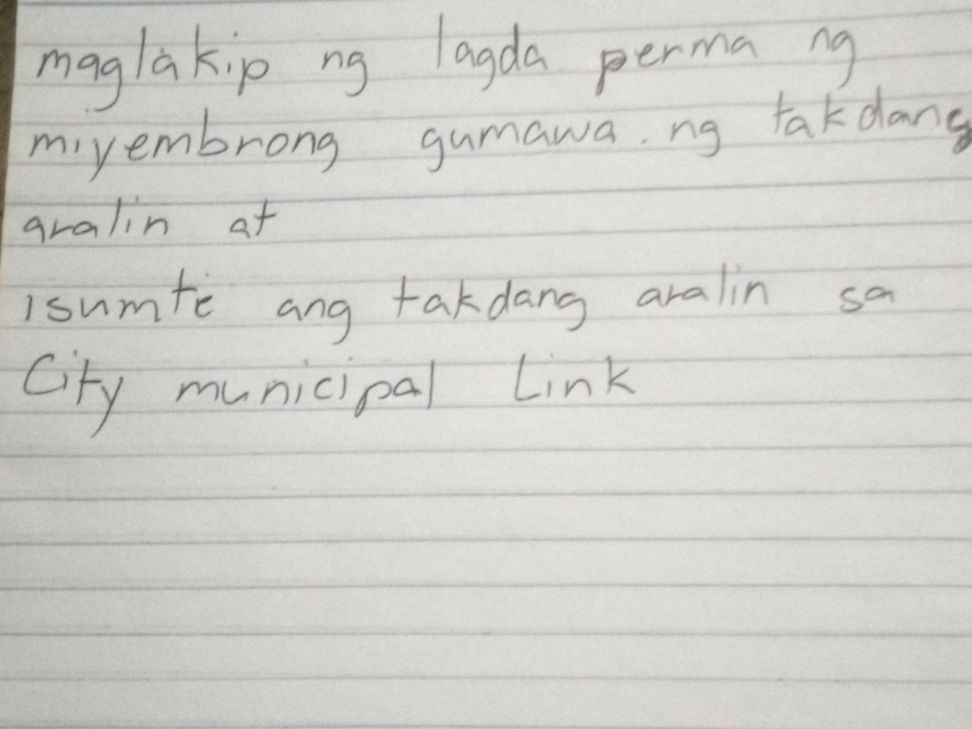 maglakip ng lagda perma ng
miyembrong gumawa. ng takdang
aralin at
isumte ang takdang aralin sa
City municipal Link